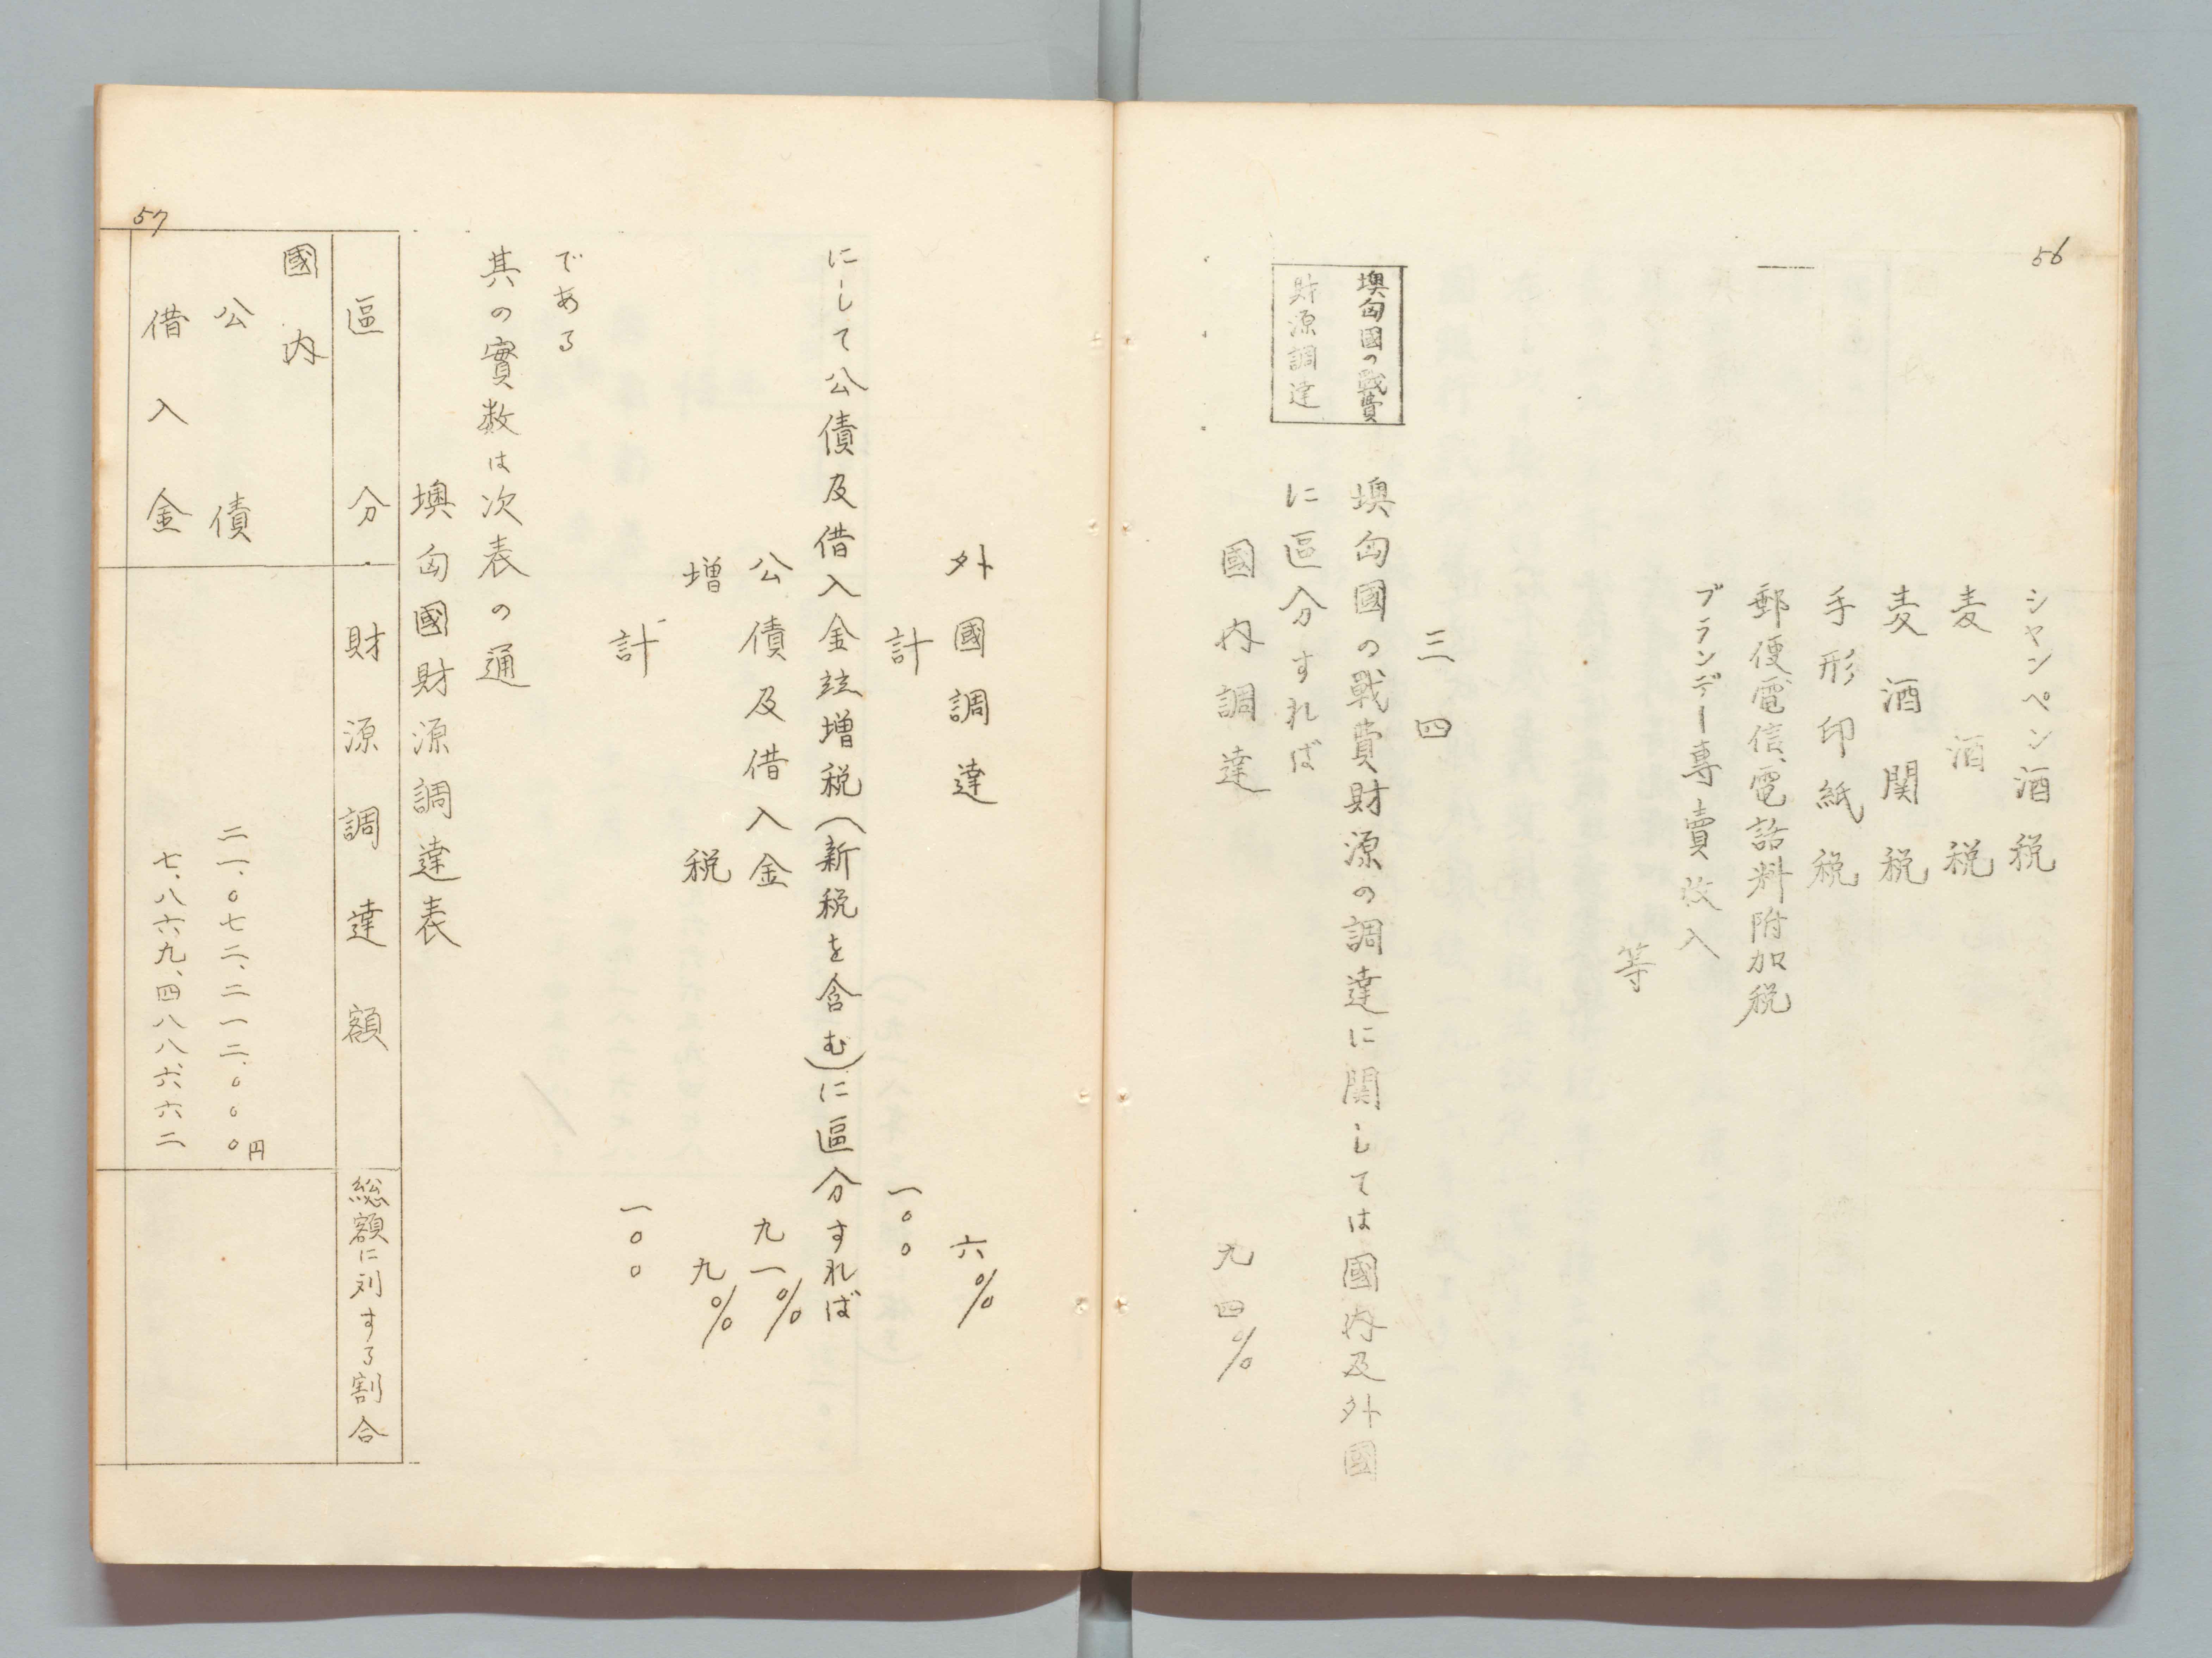 56
シャンペン酒税
麦酒税
麦酒関税
手形印紙税
郵便電信、電話料附加税
ブランデー専賣收入
等
三四
墺匈國の戰費
財源調達
墺匈國の戰費財源の調達に関しては國内及外國
に區分すれば
國内調達 九四%
外國調達 六%
計 一〇〇
にして公債及借入金竝増税(新税を含む)に區分すれば
公債及借入金 九一%
増税 九%
計 一〇〇
である
其の實数は次表の通
墺匈國財源調達表
57
區分 財源調達額 総額に対する割合
國内
公債 二一、〇七二、二一二、〇〇〇円
借入金 七、八六九、四八八、六六二